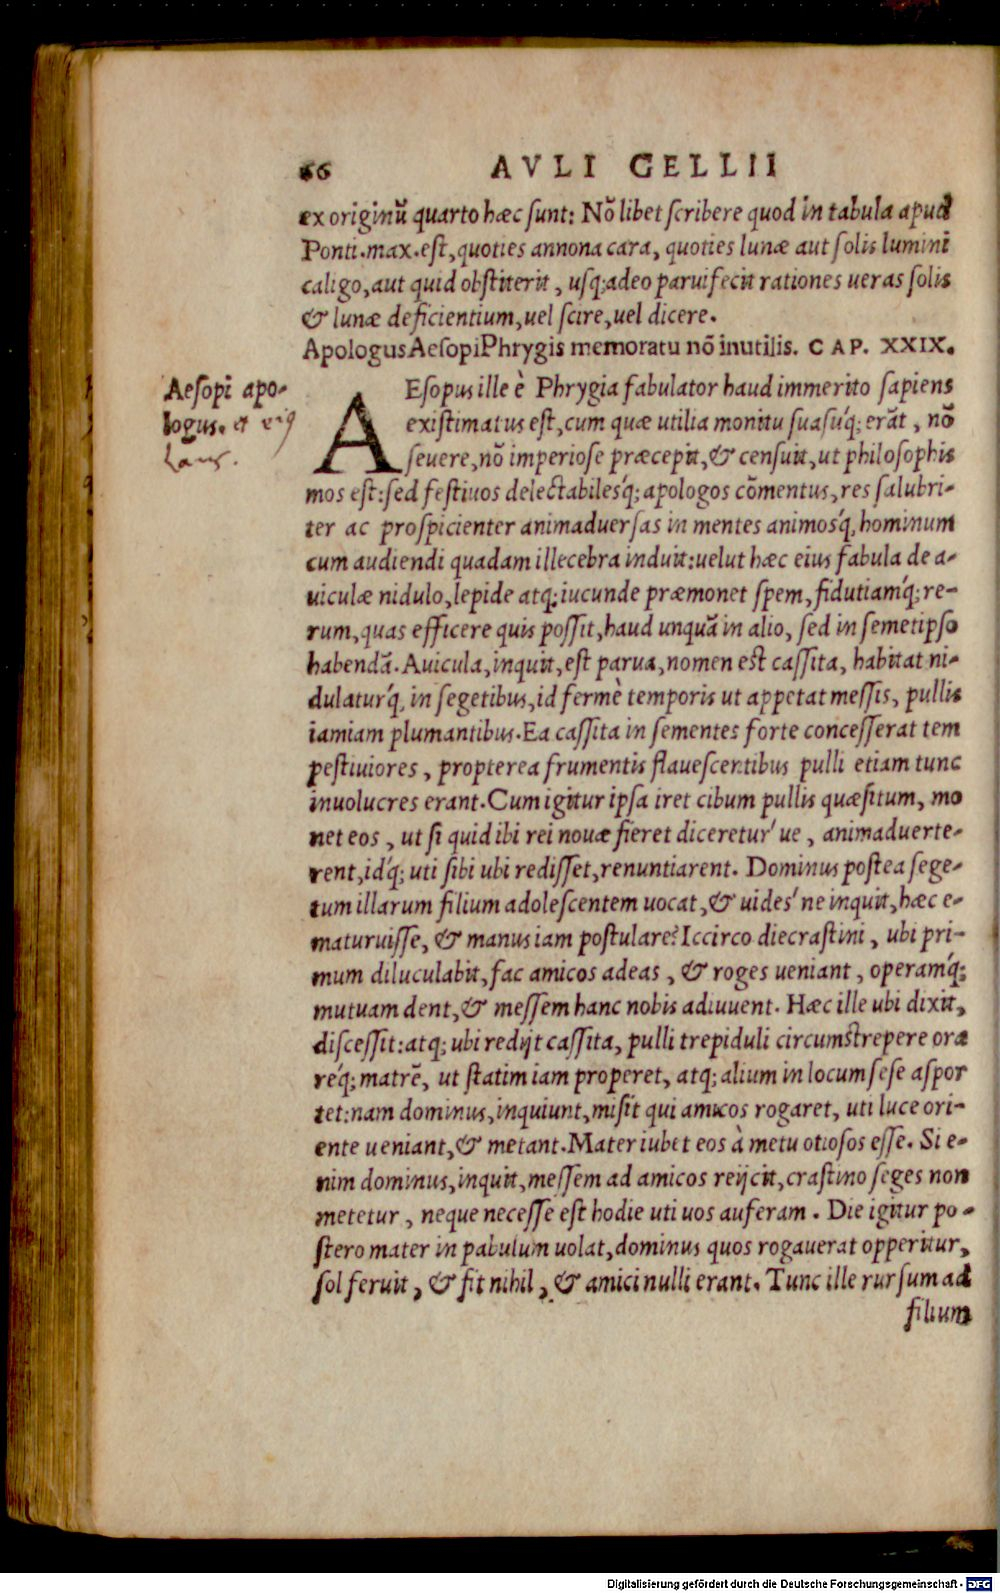 66 AVLI GELLII
ex originũ quarto hæc sunt: Nõ libet scribere quod in tabula apud
Ponti.max.est, quoties annona cara, quoties lunæ aut solis lumini
caligo, aut quid obstiterit, usq;adeo parui fecit rationes ueras solis
& lunæ deficientium, uel scire, uel dicere.
Apologus Aesopi Phrygis memoratu nõ inutilis. CAP. XXIX.
Aesopi apo-
logus. et
Laus.
AEsopus ille è Phrygia fabulator haud immerito sapiens
existimatus est, cum quæ utilia monitu suasuq́; erãt, nõ
seuere, nõ imperiose præcepit, & censuit, ut philosophis
mos est: sed festiuos delectabilesq́; apologos cõmentus, res salubri-
ter ac prospicienter animaduersas in mentes animosq́, hominum
cum audiendi quadam illecebra induit: uelut hæc eius fabula de a-
uiculæ nidulo, lepide atq; iucunde præmonet spem, fidutiamq́; re-
rum, quas efficere quis possit, haud unquã in alio, sed in semetipso
habendã. Auicula, inquit, est parua, nomen est cassita, habitat ni-
dulaturq́, in segetibus, id fermè temporis ut appetat messis, pullis
iamiam plumantibus. Ea cassita in sementes forte concesserat tem
pestiuiores, propterea frumentis flauescentibus pulli etiam tunc
inuolucres erant. Cum igitur ipsa iret cibum pullis quæsitum, mo
net eos, ut si quid ibi rei nouæ fieret diceretur' ue, animaduerte-
rent, idq́; uti sibi ubi redisset, renuntiarent. Dominus postea sege-
tum illarum filium adolescentem uocat, & uides' ne inquit, hæc e-
maturuisse, & manus iam postulare? Iccirco die crastini, ubi pri-
mum diluculabit, fac amicos adeas, & roges ueniant, operamq́;
mutuam dent, & messem hanc nobis adiuuent. Hæc ille ubi dixit,
discessit: atq; ubi redijt cassita, pulli trepiduli circumstrepere ora
req́; matrẽ, ut statim iam properet, atq; alium in locum sese aspor
tet: nam dominus, inquiunt, misit qui amicos rogaret, uti luce ori-
ente ueniant, & metant. Mater iubet eos à metu otiosos esse. Si e-
nim dominus, inquit, messem ad amicos reijcit, crastino seges non
metetur, neque necesse est hodie uti uos auferam. Die igitur po-
stero mater in pabulum uolat, dominus quos rogauerat opperitur,
sol feruit, & fit nihil, & amici nulli erant. Tunc ille rursum ad
filium
Digitalisierung gefördert durch die Deutsche Forschungsgemeinschaft - DFG